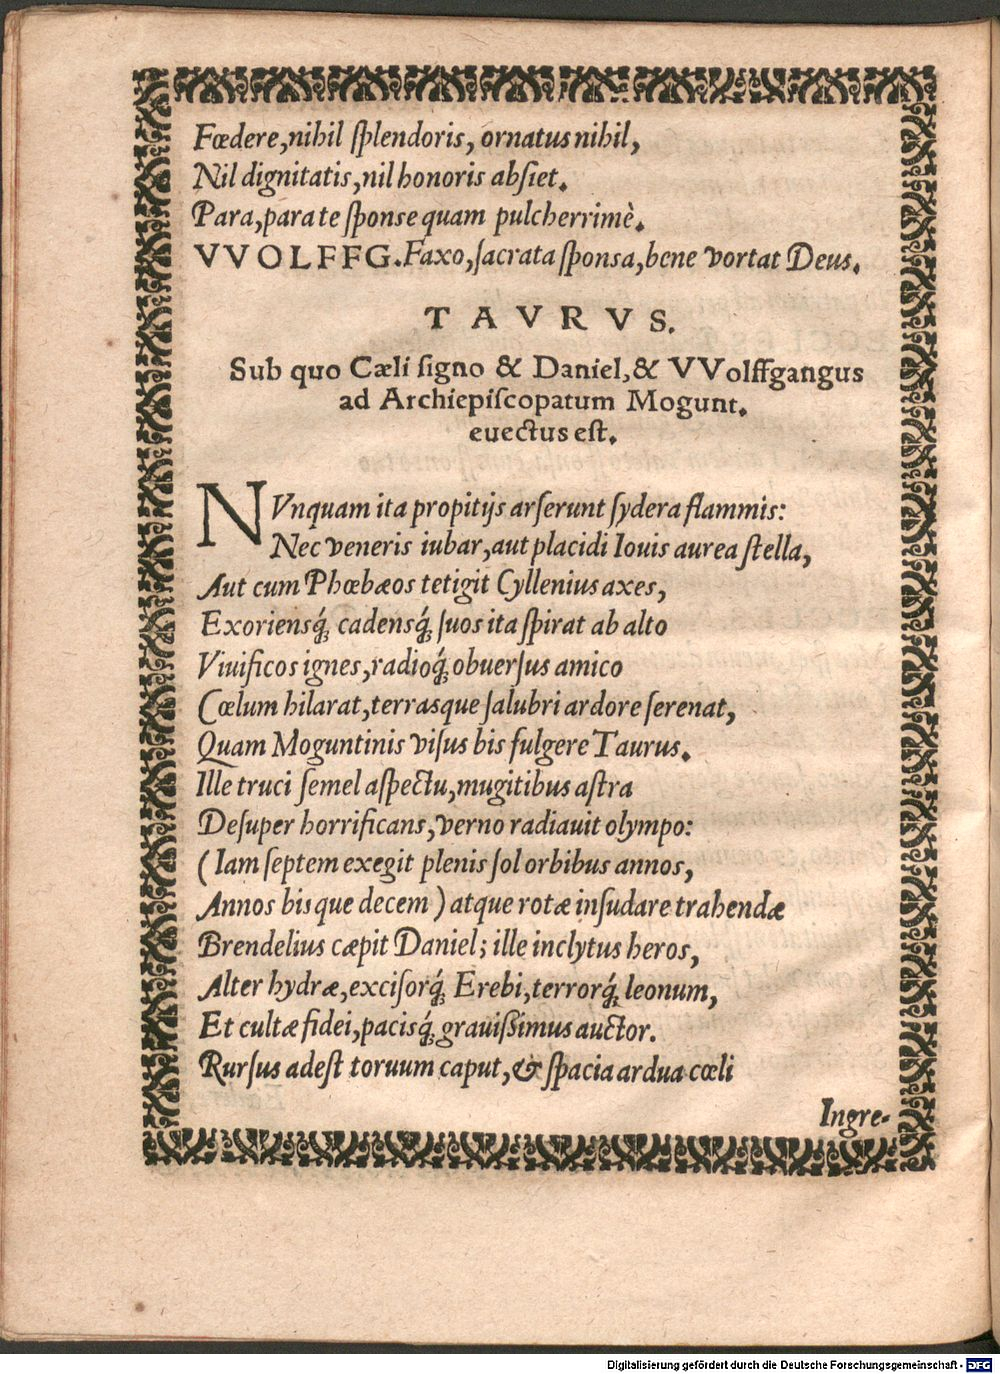 Fœdere, nihil ſplendoris, ornatus nihil,
Nil dignitatis, nil honoris abſiet.
Para, para te ſponse quam pulcherrimè.
VVOLFFG. Faxo, ſacrata ſponsa, bene vortat Deus.
TAVRVS.
Sub quo Cæli ſigno & Daniel, & VVolffgangus
ad Archiepiſcopatum Mogunt.
evectus eſt.
NVnquam ita propitijs arſerunt ſydera flammis:
Nec veneris iubar, aut placidi Iouis aurea ſtella,
Aut cum Phœbæos tetigit Cyllenius axes,
Exoriensq́; cadensq́; ſuos ita ſpirat ab alto
Viuificos ignes, radioq́; obuerſus amico
Cœlum hilarat, terrasque ſalubri ardore ſerenat,
Quam Moguntinis viſus bis fulgere Taurus.
Ille truci ſemel aſpectu, mugitibus aſtra
Deſuper horrificans, verno radiauit olympo:
(Iam ſeptem exegit plenis ſol orbibus annos,
Annos bis que decem) atque rotæ inſudare trahendæ
Brendelius cæpit Daniel; ille inclytus heros,
Alter hydræ, exciſorq́; Erebi, terrorq́; leonum,
Et cultæ fidei, pacisq́; grauißimus auctor.
Rurſus adeſt toruum caput, & ſpacia ardua cœli
Ingre-
Digitalisierung gefördert durch die Deutsche Forschungsgemeinschaft - DFG